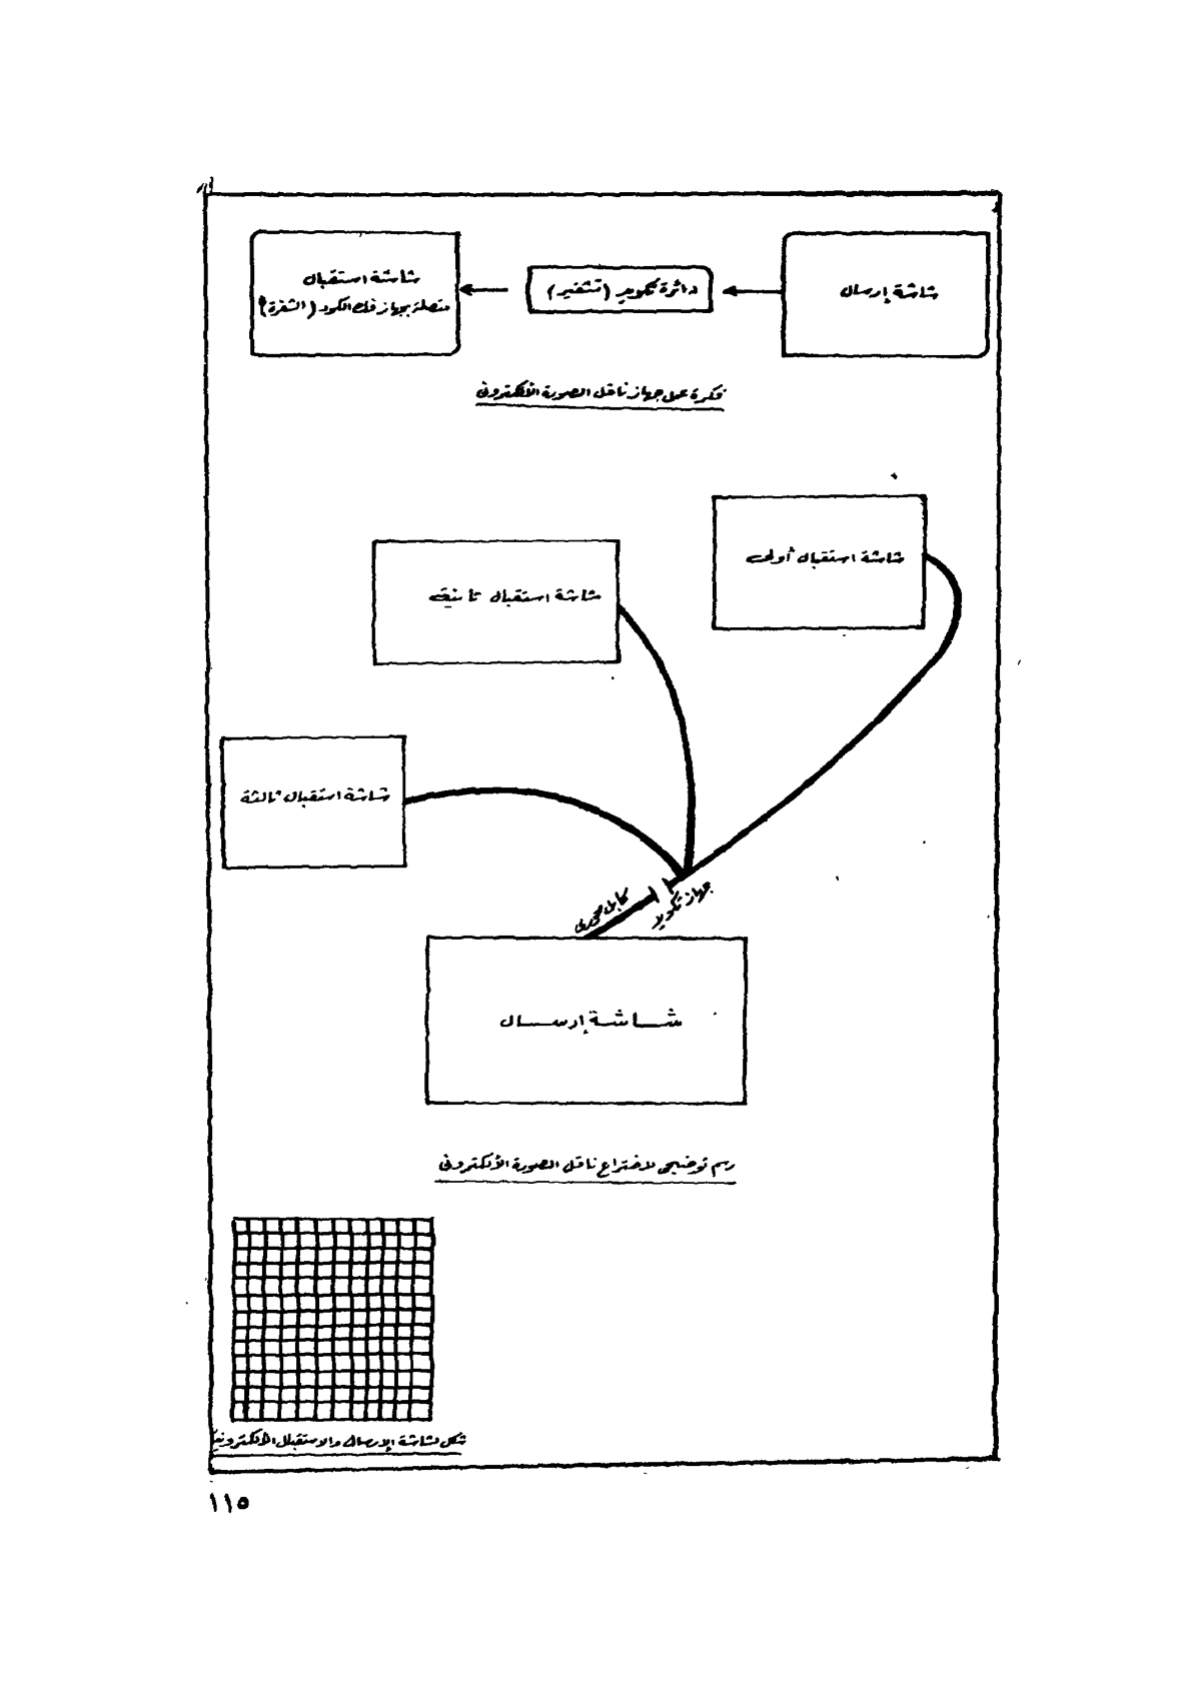 شاشة إرسال
دائرة تكويد (تشفير)
شاشة استقبال
متصلة بجهاز فك الكود (الشفرة)
فكرة عمل جهاز ناقل الصورة الألكترونى
شاشة استقبال أولى
شاشة استقبال ثانية
شاشة استقبال ثالثة
كابل محورى
جهاز تكويد
شاشة إرسال
رسم توضيحى لاختراع ناقل الصورة الألكترونى
شكل لشاشة الإرسال والاستقبال الألكترونية
١١٥